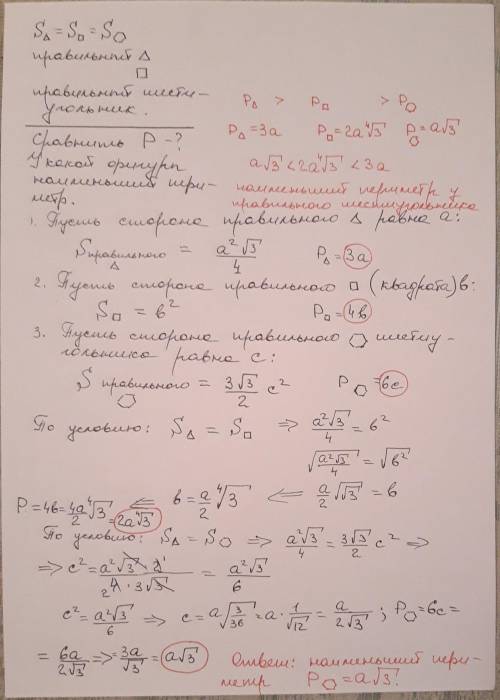 S△ = S□ = S⬡
правильный △
□
правильный шести-
угольник.
P△ > P□ > P⬡
P△ = 3a P□ = 2a∜3 P⬡ = a√3
a√3 < 2a∜3 < 3a
наименьший периметр у
правильного шестиугольника
Сравнить P - ?
У какой фигуры
наименьший пери-
метр.
1. Пусть сторона правильного △ равна a:
S правильного △ = a²√3/4 P△ = 3a
2. Пусть сторона правильного □ (квадрата) b:
S□ = b² P□ = 4b
3. Пусть сторона правильного ⬡ шестиу-
гольника равна c:
S правильного ⬡ = 3√3/2 c² P⬡ = 6c
По условию: S△ = S□ ⇒ a²√3/4 = b²
√(a²√3/4) = √b²
P = 4b = 4a/2 ∜3 = 2a∜3 ⇐ b = a/2 ∜3 ⇐ a/2 √√3 = b
По условию: S△ = S⬡ ⇒ a²√3/4 = 3√3/2 c² ⇒
⇒ c² = a²√3 · 2/(4 · 3√3) = a²√3/6
c² = a²√3/6 ⇒ c = a√(3/36) = a · 1/√12 = a/2√3 ; P⬡ = 6c =
= 6a/2√3 ⇒ = 3a/√3 = a√3 Ответ: наименьший пери-
метр P⬡ = a√3!